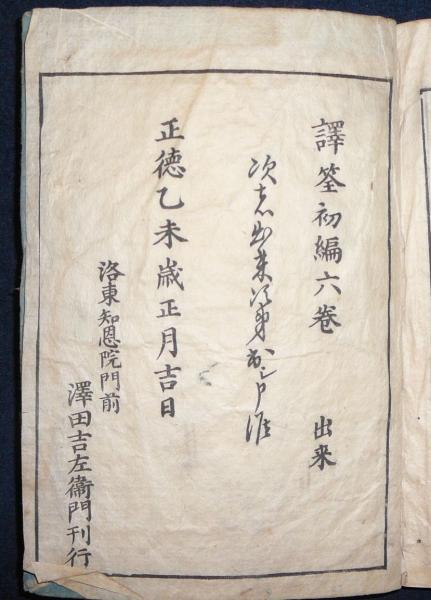 譯筌初編六巻 出来
次者出来次第出シ申候
正徳乙未歳正月吉日
洛東知恩院門前
澤田吉左衞門刊行